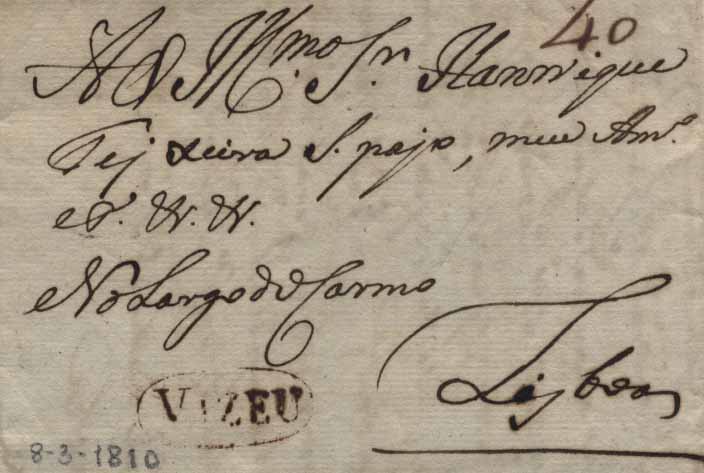 40
Ao Illmo Snr Hanrrique
Teyxeira S. payo, meu Amº.
eS. &. &.
No Largo do Carmo
Lisboa
VIZEU
8-3-1810